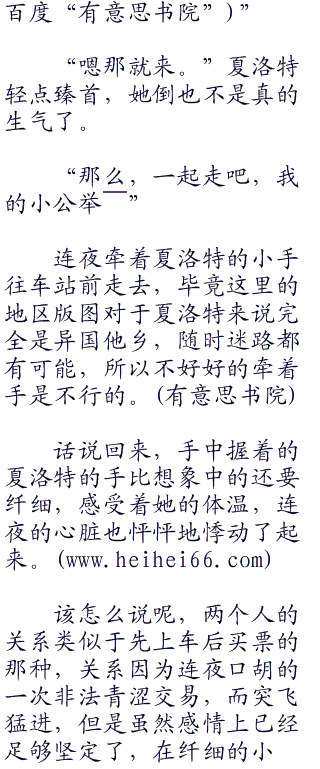 百度“有意思书院”)”
“嗯那就来。”夏洛特
轻点臻首，她倒也不是真的
生气了。
“那么，一起走吧，我
的小公举__”
连夜牵着夏洛特的小手
往车站前走去，毕竟这里的
地区版图对于夏洛特来说完
全是异国他乡，随时迷路都
有可能，所以不好好的牵着
手是不行的。(有意思书院)
话说回来，手中握着的
夏洛特的手比想象中的还要
纤细，感受着她的体温，连
夜的心脏也怦怦地悸动了起
来。(www.heihei66.com)
该怎么说呢，两个人的
关系类似于先上车后买票的
那种，关系因为连夜口胡的
一次非法青涩交易，而突飞
猛进，但是虽然感情上已经
足够坚定了，在纤细的小